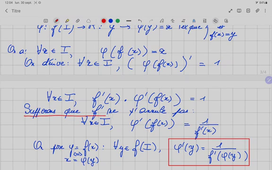 φ: f(I) → ℝ : y ↦ φ(y) = x
f(x)=y
On a : ∀x∈I, φ(f(x)) = x
On dérive : ∀x∈I, (φ(f(x)))' = 1
∀x∈I, f'(x) . φ'(f(x)) = 1
Supposons que f' ne s'annule pas
∀x∈I, φ'(f(x)) = 1/f'(x)
On pose y = f(x) : ∀y∈f(I), φ'(y) = 1/f'(φ(y))
x = φ(y)